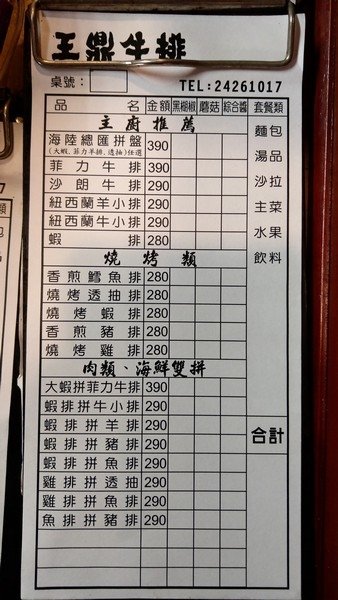 王鼎牛排
桌號： TEL:24261017
品名 金額 黑椒 蘑菇 綜合醬 套餐類
主廚推薦
海陸總匯拼盤 390
(大蝦、菲力羊排、透抽)任選
菲力牛排 390
沙朗牛排 290
紐西蘭羊小排 290
紐西蘭牛小排 290
蝦排 280
燒烤類
香煎鱈魚排 280
燒烤透抽排 280
燒烤蝦排 280
香煎豬排 280
燒烤雞排 280
肉類、海鮮雙拼
大蝦拼菲力牛排 390
蝦排拼牛小排 290
蝦排拼羊排 290
蝦排拼豬排 290
蝦排拼魚排 290
雞排拼透抽 290
雞排拼魚排 290
魚排拼豬排 290
麵包
湯品
沙拉
主菜
水果
飲料
合計